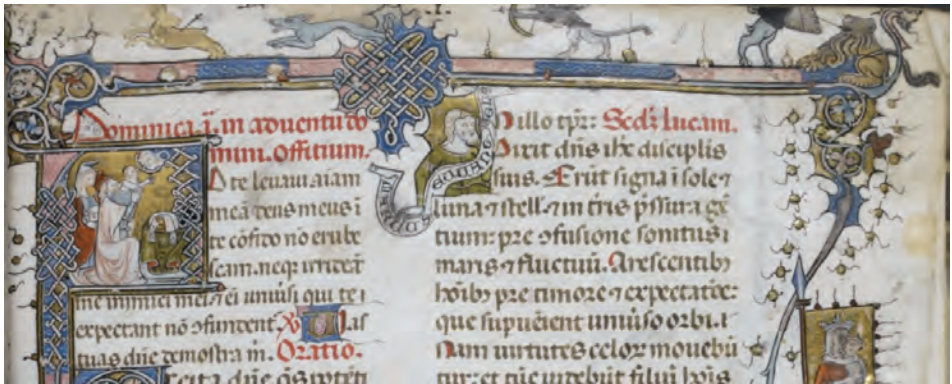 Dominica i. in aduentu do
mini. Offitium.
A d te leuaui aīam
meā deus meus ī
te cōfido nō erube
scam. neqz irrideāt
me inimici mei ⁊ ei uniūsi qui te
expectant nō ɔfundent. Vias
tuas dn̄e demostra m̄. Oratio.
Excita dn̄e q̄s potēti
In illo tp̄r: Scd̄z lucam.
Dixit dn̄s ih̄c discipl̄is
suis. Erūt signa ī sole ⁊
luna ⁊ stell̄ ⁊ in tr̄is p̄ssura gē
tium: pre ɔfusione sonitus
maris ⁊ fluctuū. Arescentibz
hoībz pre timore ⁊ expectatōe:
que supueīent uniūso orbi.
Nam uirtutes celoꝝ mouebū
tur: et tūc uidebūt filiū hoīs